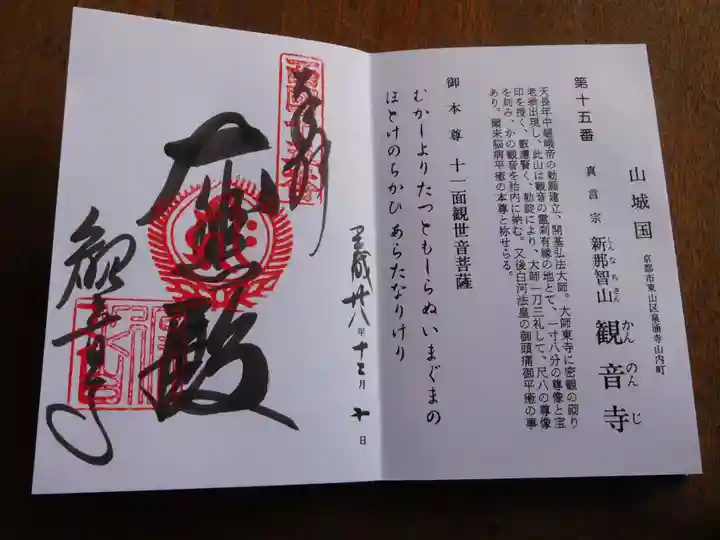 山城国 京都市東山区泉涌寺山内町
第十五番 真言宗 新那智山 観音寺
しんなちさん かんのんじ
天長年中嵯峨帝の勅願建立、開基弘法大師。大師東寺に密観の砌り
老翁出現し、此山は観音の霊刹有縁の地とて、一寸八分の尊像と宝
印を授く、叡慮賢く、勅諚により、大師一刀三礼して、尺八の尊像
を刻み、かの観音を胎内に納む。又後白河法皇の御頭痛御平癒の事
あり。爾来脳病平癒の本尊と称せらる。
御本尊 十一面観世音菩薩
むかしよりたつともしらぬいまぐまの
ほとけのちかひあらたなりけり
平成廿八年十二月十日
奉拝
大悲殿
観音寺